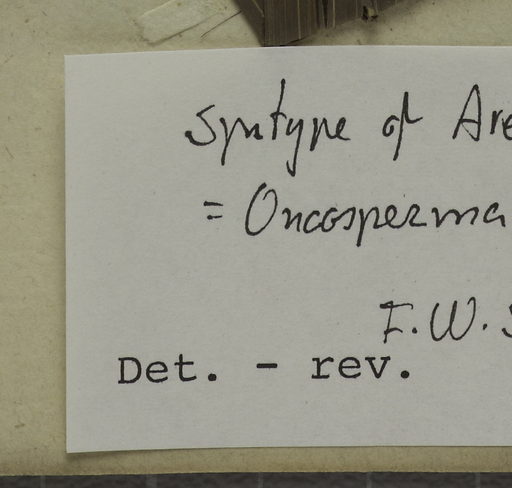 Syntype of Are
= Oncosperma
F.W. S
Det. - rev.